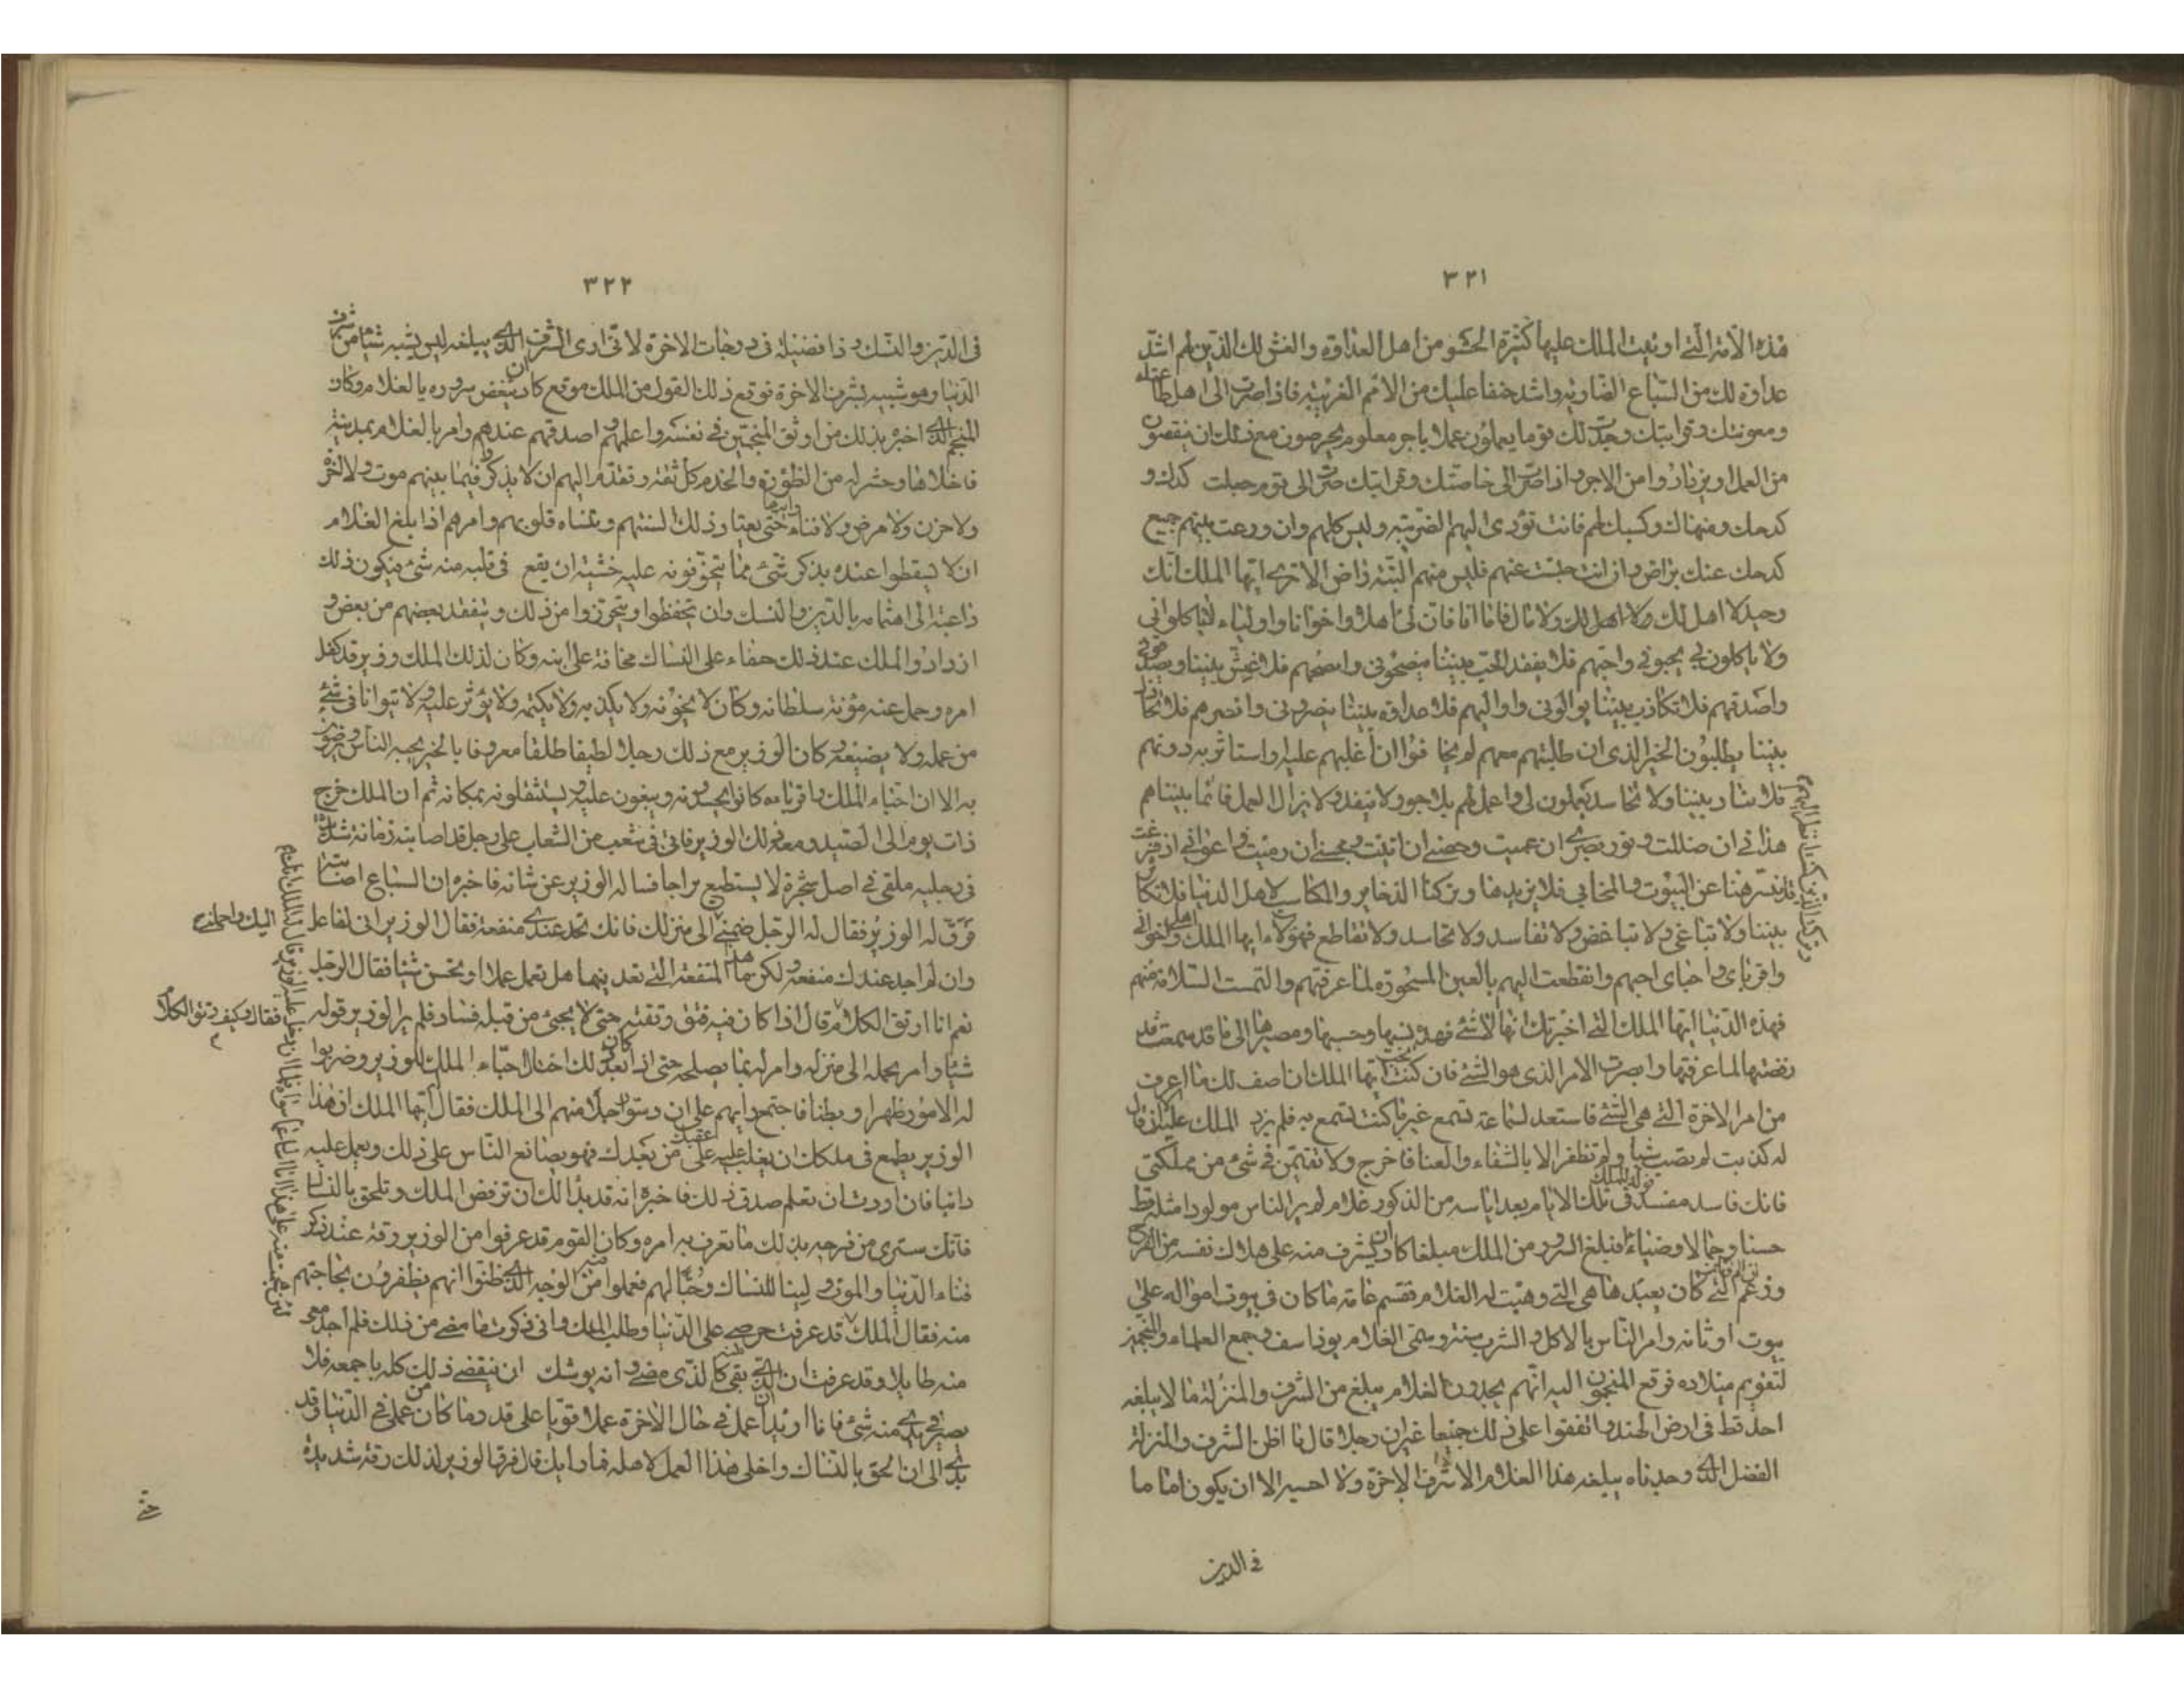 ٣٢١
هذه الامة التي اوتيت الملك عليها كثيرة الحشو من اهل العداوة والغش لك الذين هم اشد
عداوة لك من السباع الضارية واشد حنقا عليك من الامم الغريبة فاذا صرت الى اهل طاعتك
ومعونتك وقرابتك وجدت لك قوما يعملون عملا باجر معلوم يحرصون مع ذلك ان ينقصوك
من العمل ويزدادوا من الاجر واذا صرت الى خاصتك وقرابتك صرت الى قوم جعلت كدك و
كدحك ومهناك وكسبك لهم فانت تؤدى اليهم الضريبة وليس كلهم وان وزعت بينهم جميع
كدحك عنك براض وان انت حبست عنهم فليس منهم البتة راض الا ترى ايها الملك انك
وحيد لا اهل لك ولا مال فاما انا فان لي اهلا واخوانا واولياء لا ياكلوني
ولا ياكلون بي يحبوني واحبهم فلا يفقد الحب بيننا ينصحوني وانصحهم فلا غش بيننا ويصدقوني
واصدقهم فلا تكاذب بيننا يوالوني واواليهم فلا عداوة بيننا ينصروني وانصرهم فلا تخاذل
بيننا يطلبون الخير الذي ان طلبته معهم لم يخافوا ان اغلبهم عليه واستاثر به دونهم
فلا فساد بيننا ولا تحاسد يعملون لي واعمل لهم باجور لا تنفد ولا يزال العمل قائما بيننا هم
هداتي ان ضللت ونور بصري ان عميت وحصني ان اتيت ومجني ان رميت واعواني اذا فزعت
قد تنزهنا عن البيوت والمخابي فلا نريدها وتركنا الذخاير والمكاسب لاهل الدنيا فلا تكاثر
بيننا ولا تباغي ولا تباغض ولا تفاسد ولا تحاسد ولا تقاطع فهؤلاء ايها الملك اهلي واخواني
واقربائي واحبائي احبهم وانقطعت اليهم بالعين المسحورة لما عرفتهم والتمست السلامة منهم
فهذه الدنيا ايها الملك التي اخبرتك انها لا شئ فهذا نسبها وحسبها ومصيرها الى ما قد سمعت قد
رفضتها لما عرفتها وابصرت الامر الذي هو الشئ فان كنت تحب ايها الملك ان اصف لك ما اعرف
من امر الاخرة التي هي الشئ فاستعد لسماعه تسمع غير ما كنت تسمع به فلم يزد الملك عليه ان قال
له كذبت لم تصب شيئا ولم تظفر الا بالشقاء والعنا فاخرج ولا تقيمن في شئ من مملكتي
فانك فاسد مفسد وولد للملك في تلك الايام بعد اياسه من الذكور غلام لم ير الناس مولودا مثله قط
حسنا وجمالا وضياءا فبلغ السرور من الملك مبلغا كاد ان يشرف منه على هلاك نفسه من الفرح
وزعم ان الاوثان التي كان يعبدها هي التي وهبت له الغلام فقسم عامة ما كان في بيوت امواله على
بيوت اوثانه وامر الناس بالاكل والشرب سنة وسمى الغلام يوذاسف وجمع العلماء والمنجمين
لتقويم ميلاده فرفع المنجمون اليه انهم يجدون الغلام يبلغ من الشرف والمنزلة ما لا يبلغه
احد قط في ارض الهند واتفقوا على ذلك جميعا غير ان رجلا قال ما اظن الشرف والمنزلة
الفضل الذي وجدناه يبلغه هذا الغلام الا شرف الاخرة ولا احسبه الا ان يكون اماما
في الدين
٣٢٢
في الدين والنسك وذا فضيلة في درجات الاخرة لاني ارى الشرف الذي يبلغه ليس يشبه شيئا من شرف
الدنيا وهو شبيه بشرف الاخرة فوقع ذلك القول من الملك موقع كاد ان ينغص سروره بالغلام وكان
المنجم الذي اخبره بذلك من اوثق المنجمين في نفسه واعلمهم واصدقهم عنده وامر بالغلام بمدينة
فاخلاها وحشر له من الظؤرة والخدم كل ثقة وتقدم اليهم ان لا يذكر فيما بينهم موت ولا اخرة
ولا حزن ولا مرض ولا فناء حتى يعتاد ذلك السنتهم وتنساه قلوبهم وامرهم اذا بلغ الغلام
ان لا ينطقوا عنده بذكر شئ مما يتخوفونه عليه خشية ان يقع في قلبه منه شئ فيكون ذلك
داعية الى اهتمامه بالدين والنسك وان يتحفظوا ويتحرزوا من ذلك ويتفقد بعضهم من بعض و
ازداد الملك عند ذلك حنقا على النساك مخافة على ابنه وكان لذلك الملك وزير قد كفل
امره وحمل عنه مؤنة سلطانه وكان لا يخونه ولا يكذبه ولا يكتمه ولا يؤثر عليه ولا يتوانا في شئ
من عمله ولا يضيعه وكان الوزير مع ذلك رجلا لطيفا طلقا معروفا بالخير يحبه الناس ويرضون
به الا ان احباء الملك واقرباءه كانوا يحسدونه ويبغون عليه ويستثقلونه بمكانه ثم ان الملك خرج
ذات يوم الى الصيد ومعه ذلك الوزير فاتى في شعب من الشعاب على رجل قد اصابته زمانة شديدة
في رجليه ملقى في اصل شجرة لا يستطيع براحا فساله الوزير عن شانه فاخبره ان السباع اصابته
فرق له الوزير فقال له الرجل ضمني اليك واحملني الى منزلك فانك تجد عندي منفعة فقال الوزير اني لفاعل
وان لم اجد عندك منفعة ولكن ما هذه المنفعة التي تعدنيها هل تعمل عملا او تحسن شيئا فقال الرجل
نعم انا ارتق الكلام فقال وكيف ترتق الكلام قال اذا كان فيه فتق رتقته حتى لا يجئ من قبله فساد فلم ير الوزير قوله
شيئا وامر بحمله الى منزله وامر له بما يصلحه حتى اذا كان بعد ذلك احتال احباء الملك للوزير وضربوا
له الامور ظهرا وبطنا فاجتمع رايهم على ان دسوا رجلا منهم الى الملك فقال ايها الملك ان هذا
الوزير يطمع في ملكك ان يغلب عليه عقبك من بعدك فهو يصانع الناس على ذلك ويعمل عليه
دائبا فان اردت ان تعلم صدق ذلك فاخبره انه قد بدا لك ان ترفض الملك وتلحق بالنساك
فانك سترى من فرحه بذلك ما تعرف به امره وكان القوم قد عرفوا من الوزير رقة عند ذكر
فناء الدنيا والموت ولينا للنساك وحبا لهم فعملوا فيه من الوجه الذي ظنوا انهم يظفرون بحاجتهم
منه فقال له الملك قد عرفت حرصي على الدنيا وطلب الملك واني ذكرت ما مضى من ذلك فلم اجد معي
منه طايلا وقد عرفت ان الذي بقي كالذي مضى وانه يوشك ان ينقضي ذلك كله باجمعه فلا
يصير في يدي منه شئ فانا اريد ان اعمل في حال الاخرة عملا قويا على قدر ما كان من عملي في الدنيا وقد
بدا لي ان الحق بالنساك واخلي هذا العمل لاهله فما رايك قال فرق الوزير لذلك رقة شديدة
حتى